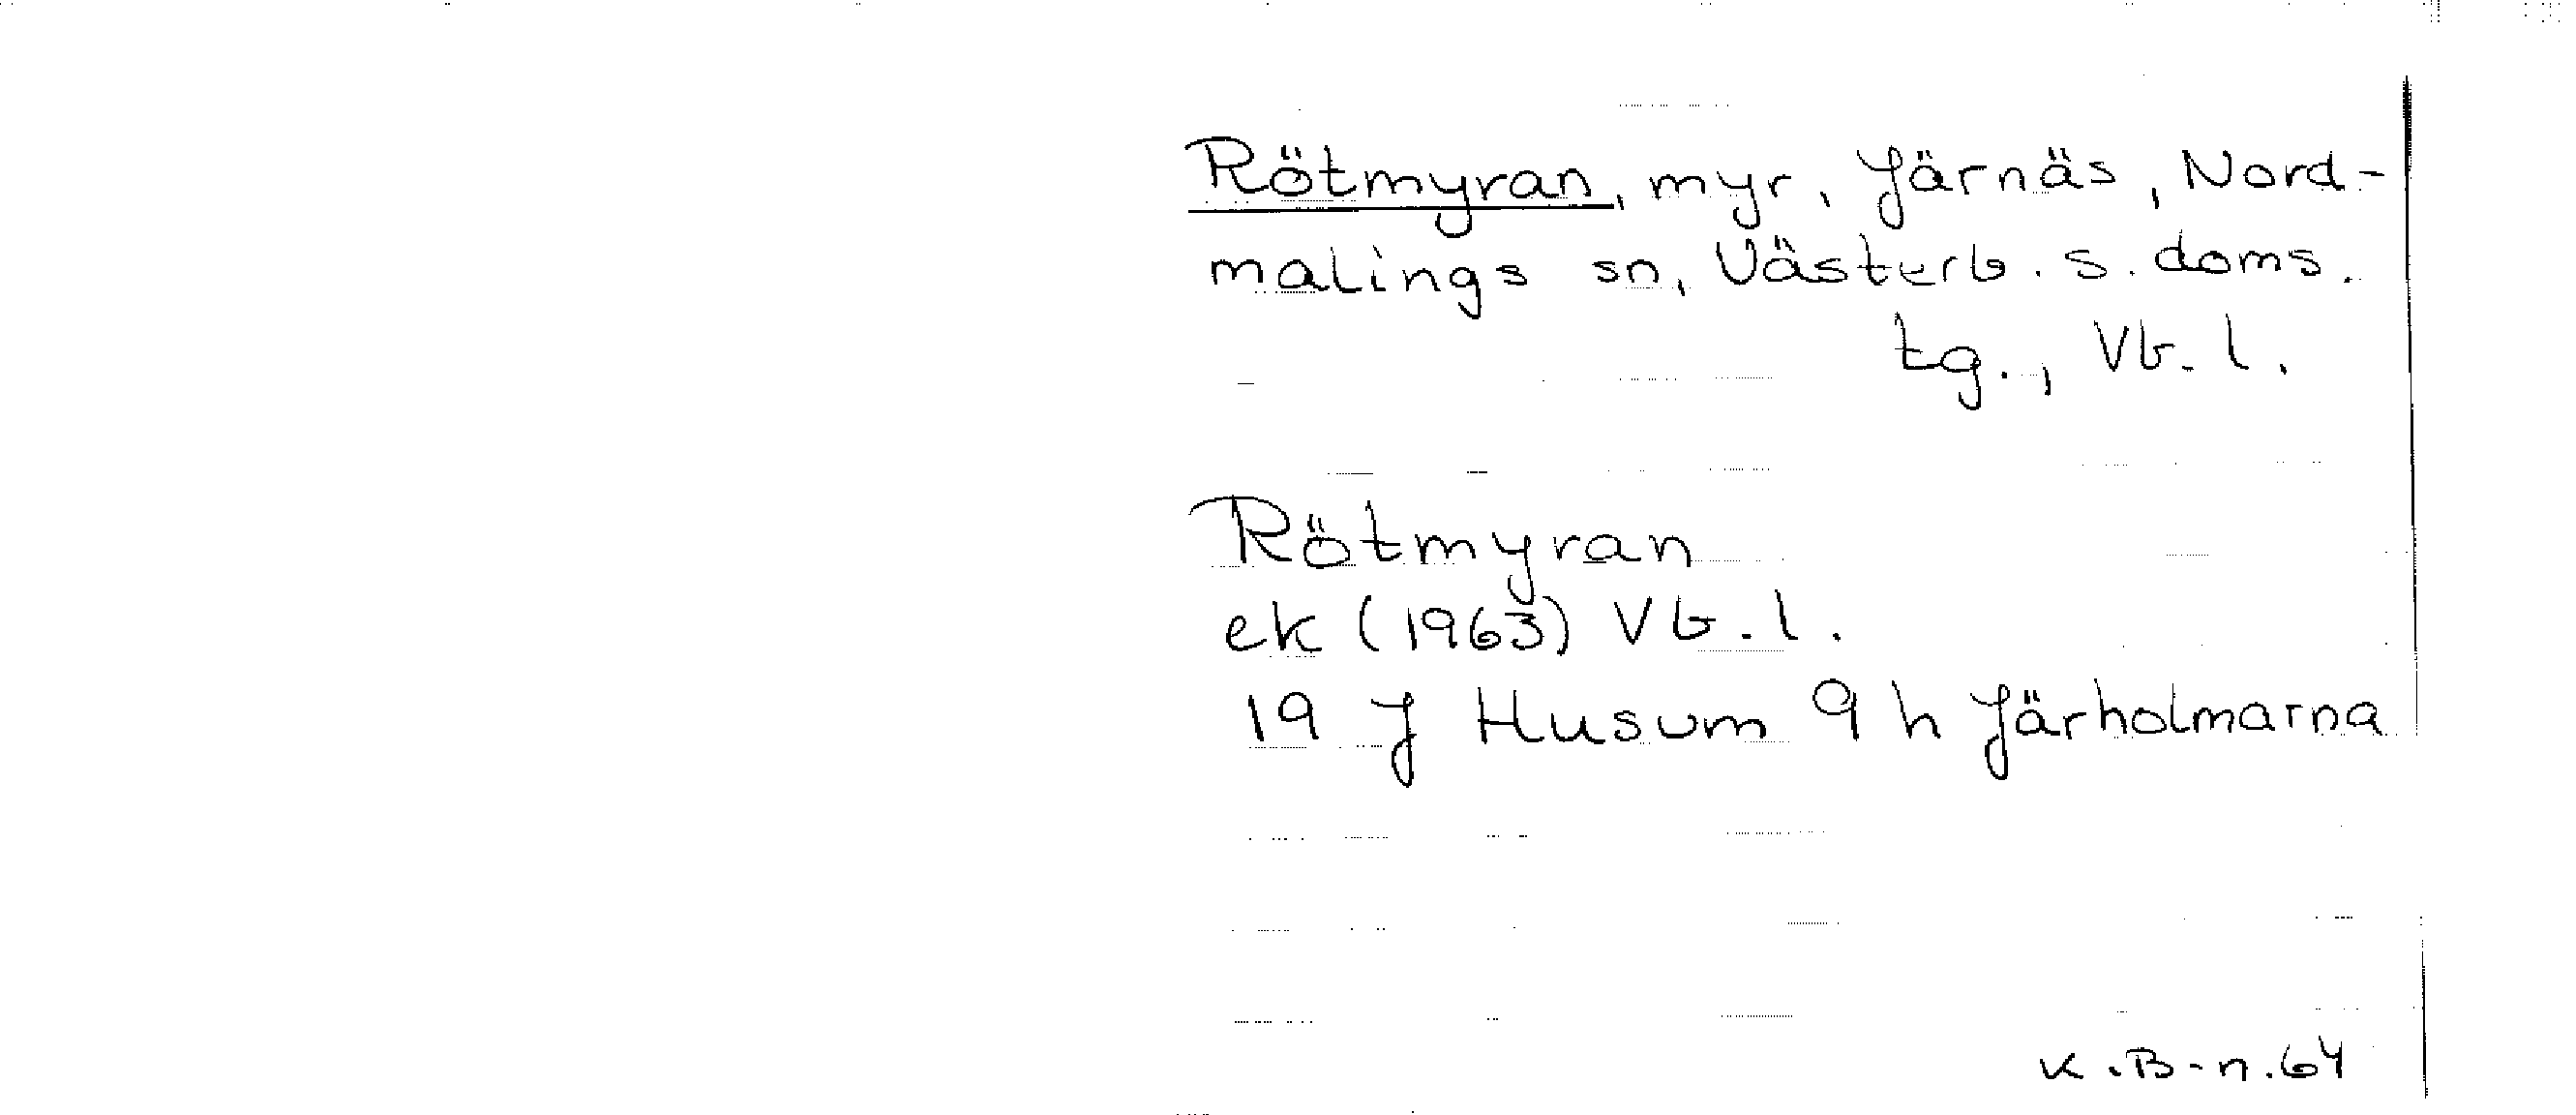 Rötmyran, myr, Järnäs, Nord-
malings sn, Västerb. s. doms.
tg., Vb. l.
Rötmyran
ek (1963) Vb. l.
19 J Husum 9 h Järholmarna
K.B-n.64